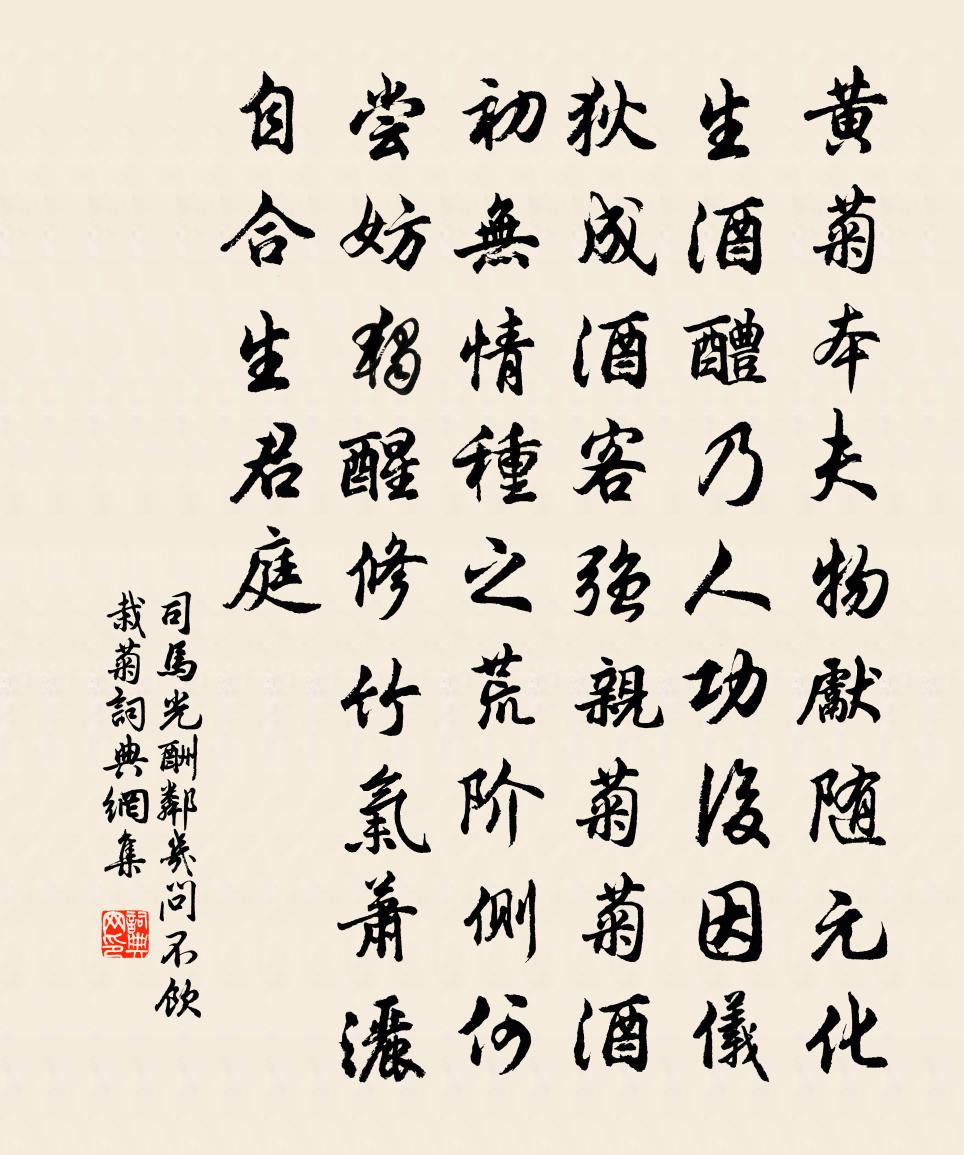 黄菊本天物獻随元化
生酒醴乃人功後因儀
狄成酒客強親菊菊酒
初無情種之荒阶側何
嘗妨獨醒修竹氣萧灑
自合生君庭
司馬光酬鄰幾問不飲
栽菊詞典網集
詞典网印